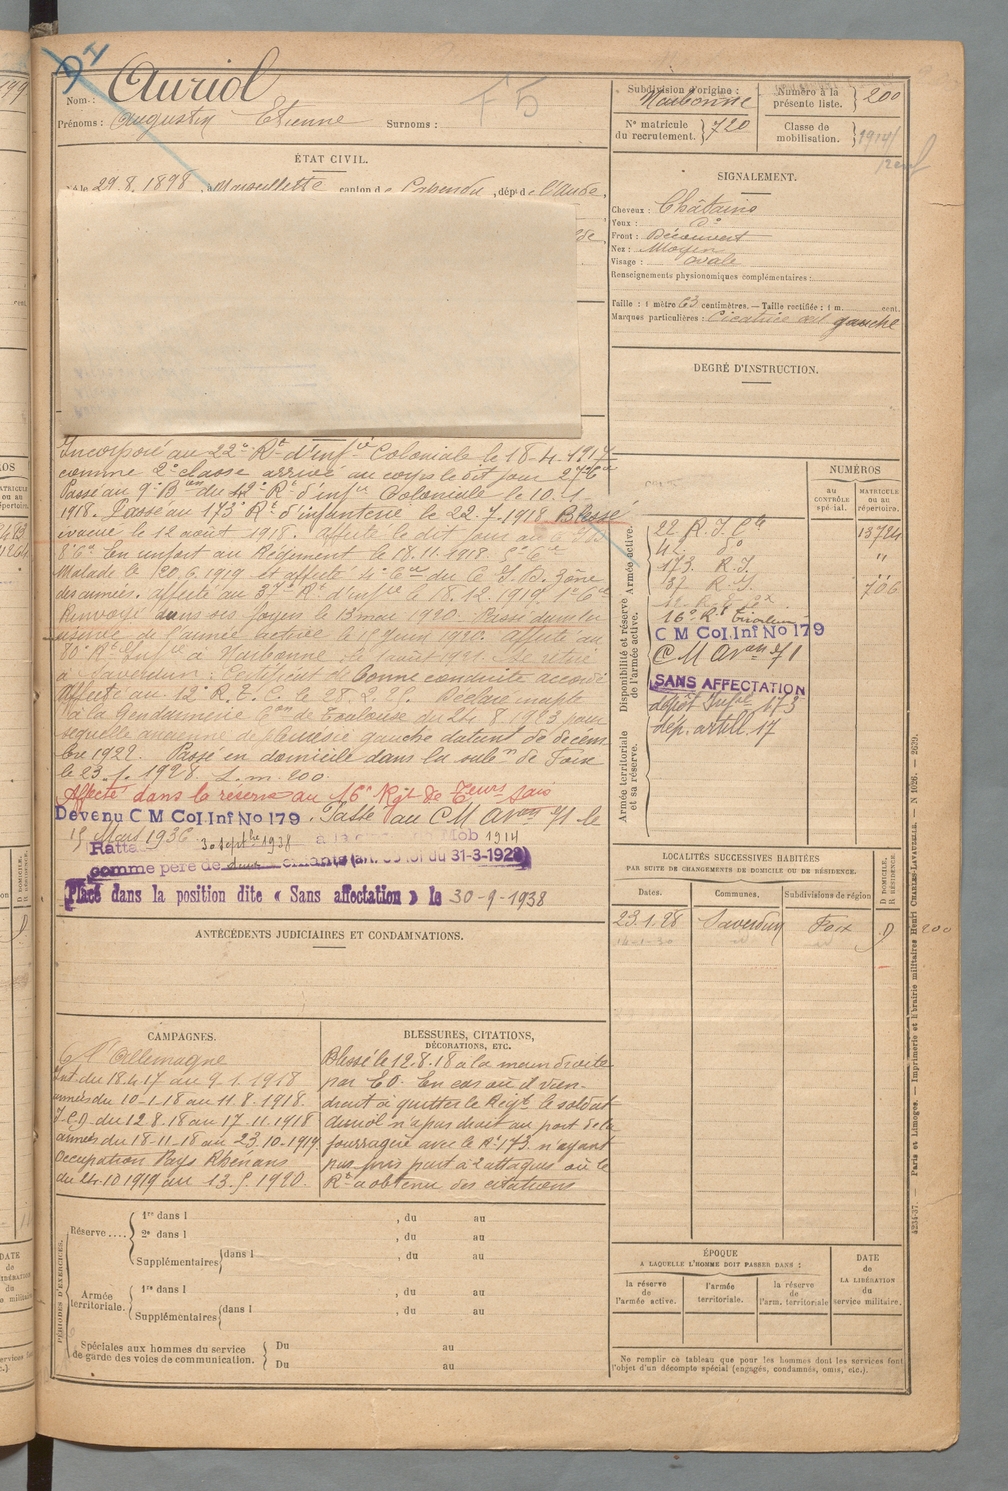 Nom : Auriol
Prénoms : Augustin Etienne Surnoms :
F5
Subdivision d'origine :
Narbonne
Numéro à la
présente liste. 200
N° matricule
du recrutement. 720
Classe de
mobilisation. 1914/
ÉTAT CIVIL.
le 29.8.1898, à Marseillette canton de Capendu, dépt de l'Aude,
SIGNALEMENT.
Cheveux : Châtains
Yeux : d°
Front : Découvert
Nez : Moyen
Visage : ovale
Renseignements physionomiques complémentaires :
Taille : 1 mètre 63 centimètres. — Taille rectifiée : 1 m. cent.
Marques particulières : Cicatrice œil gauche
DEGRÉ D'INSTRUCTION.
Incorporé au 22e Rt d'infie Coloniale le 18.4.1917
comme 2e classe arrivé au corps le dit jour 27e Cie
Passé au 9e Bon du 42e Rt d'infie Coloniale le 10.1.
1918. Passé au 173e Rt d'infanterie le 22.7.1918 Blessé
évacué le 12 août 1918. Affecté le dit jour au
En renfort au Régiment le 18.11.1918. 5e Cie
Malade le 20.6.1919 et affecté 4e Cie du C I D. Zône
des armées. affecté au 37e Rt d'infie le 18.12.1919 1e Cie
Renvoyé dans ses foyers le 13 mai 1920. Passé dans la
réserve de l'armée active le 1 Juin 1920. Affecté au
80e Rt Infie à Narbonne le 1 août 1921. Se retire
à Saverdun. Certificat de bonne conduite accordé
Affecté au 12e R.T.C. le 28.2.5. Déclaré inapte
à la Gendarmerie Con de Toulouse du 24.8.1923 pour
séquelle ancienne de pleurésie gauche datant de décem
bre 1922. Passé en domicile dans la subon de Foix
le 23.1.1928. L.m. 200.
Affecté dans la réserve au 16e Rgt de Teurs Sais
Devenu C M Col. Inf No 179. Passé au C M Aron 71 le
15 Mars 1936
Ratta 30 septbre 1938 à la Mob 1914
comme père de deux enfants (art. 58 loi du 31-3-1928)
Placé dans la position dite « Sans affectation » le 30-9-1938
NUMÉROS
au
CONTRÔLE
spécial.
MATRICULE
ou au
répertoire.
Disponibilité et réserve
de l'armée active.
Armée active.
Armée territoriale
et sa réserve.
22 R.I.Cle 13724
42 d° "
173 R.I. "
37 R.I. 706
16e Rt Tirailleurs
C M Col. Inf No 179
CM Aron 71
SANS AFFECTATION
dépôt Infie 173
dép. artill. 17
LOCALITÉS SUCCESSIVES HABITÉES
PAR SUITE DE CHANGEMENTS DE DOMICILE OU DE RÉSIDENCE.
Dates. Communes. Subdivisions de région D. DOMICILE. R. RÉSIDENCE.
23.1.28 Saverdun Foix D 200
ANTÉCÉDENTS JUDICIAIRES ET CONDAMNATIONS.
CAMPAGNES.
C/ l'Allemagne
Int. du 18.4.17 au 9.1.1918
armées du 10-1-18 au 11.8.1918.
I.C.D. du 12.8.18 au 17.11.1918
armées du 18-11-18 au 23.10-1919
Occupation Pays Rhénans
du 24.10 1919 au 13.5.1920.
BLESSURES, CITATIONS,
DÉCORATIONS, ETC.
Blessé le 12.8.18 à la main droite
par EO. En cas où il vien-
drait à quitter le Régt le soldat
Auriol n'a pas droit au port de la
fourragère avec le Rt 173 n'ayant
pas pris part à 2 attaques où le
Rt a obtenu des citations
PÉRIODES D'EXERCICES.
Réserve....
1re dans l , du au
2e dans l , du au
Supplémentaires dans l , du au
Armée
territoriale.
1re dans l , du au
Supplémentaires dans l , du au
Spéciales aux hommes du service
de garde des voies de communication.
Du au
Du au
ÉPOQUE
A LAQUELLE L'HOMME DOIT PASSER DANS :
la réserve
de
l'armée active.
l'armée
territoriale.
la réserve
de
l'arm. territoriale
DATE
de
LA LIBÉRATION
du
service militaire.
Ne remplir ce tableau que pour les hommes dont les services font
l'objet d'un décompte spécial (engagés, condamnés, omis, etc.).
4234-37. — Paris et Limoges. — Imprimerie et librairie militaires Henri CHARLES-LAVAUZELLE. — N 1026. — 2629.